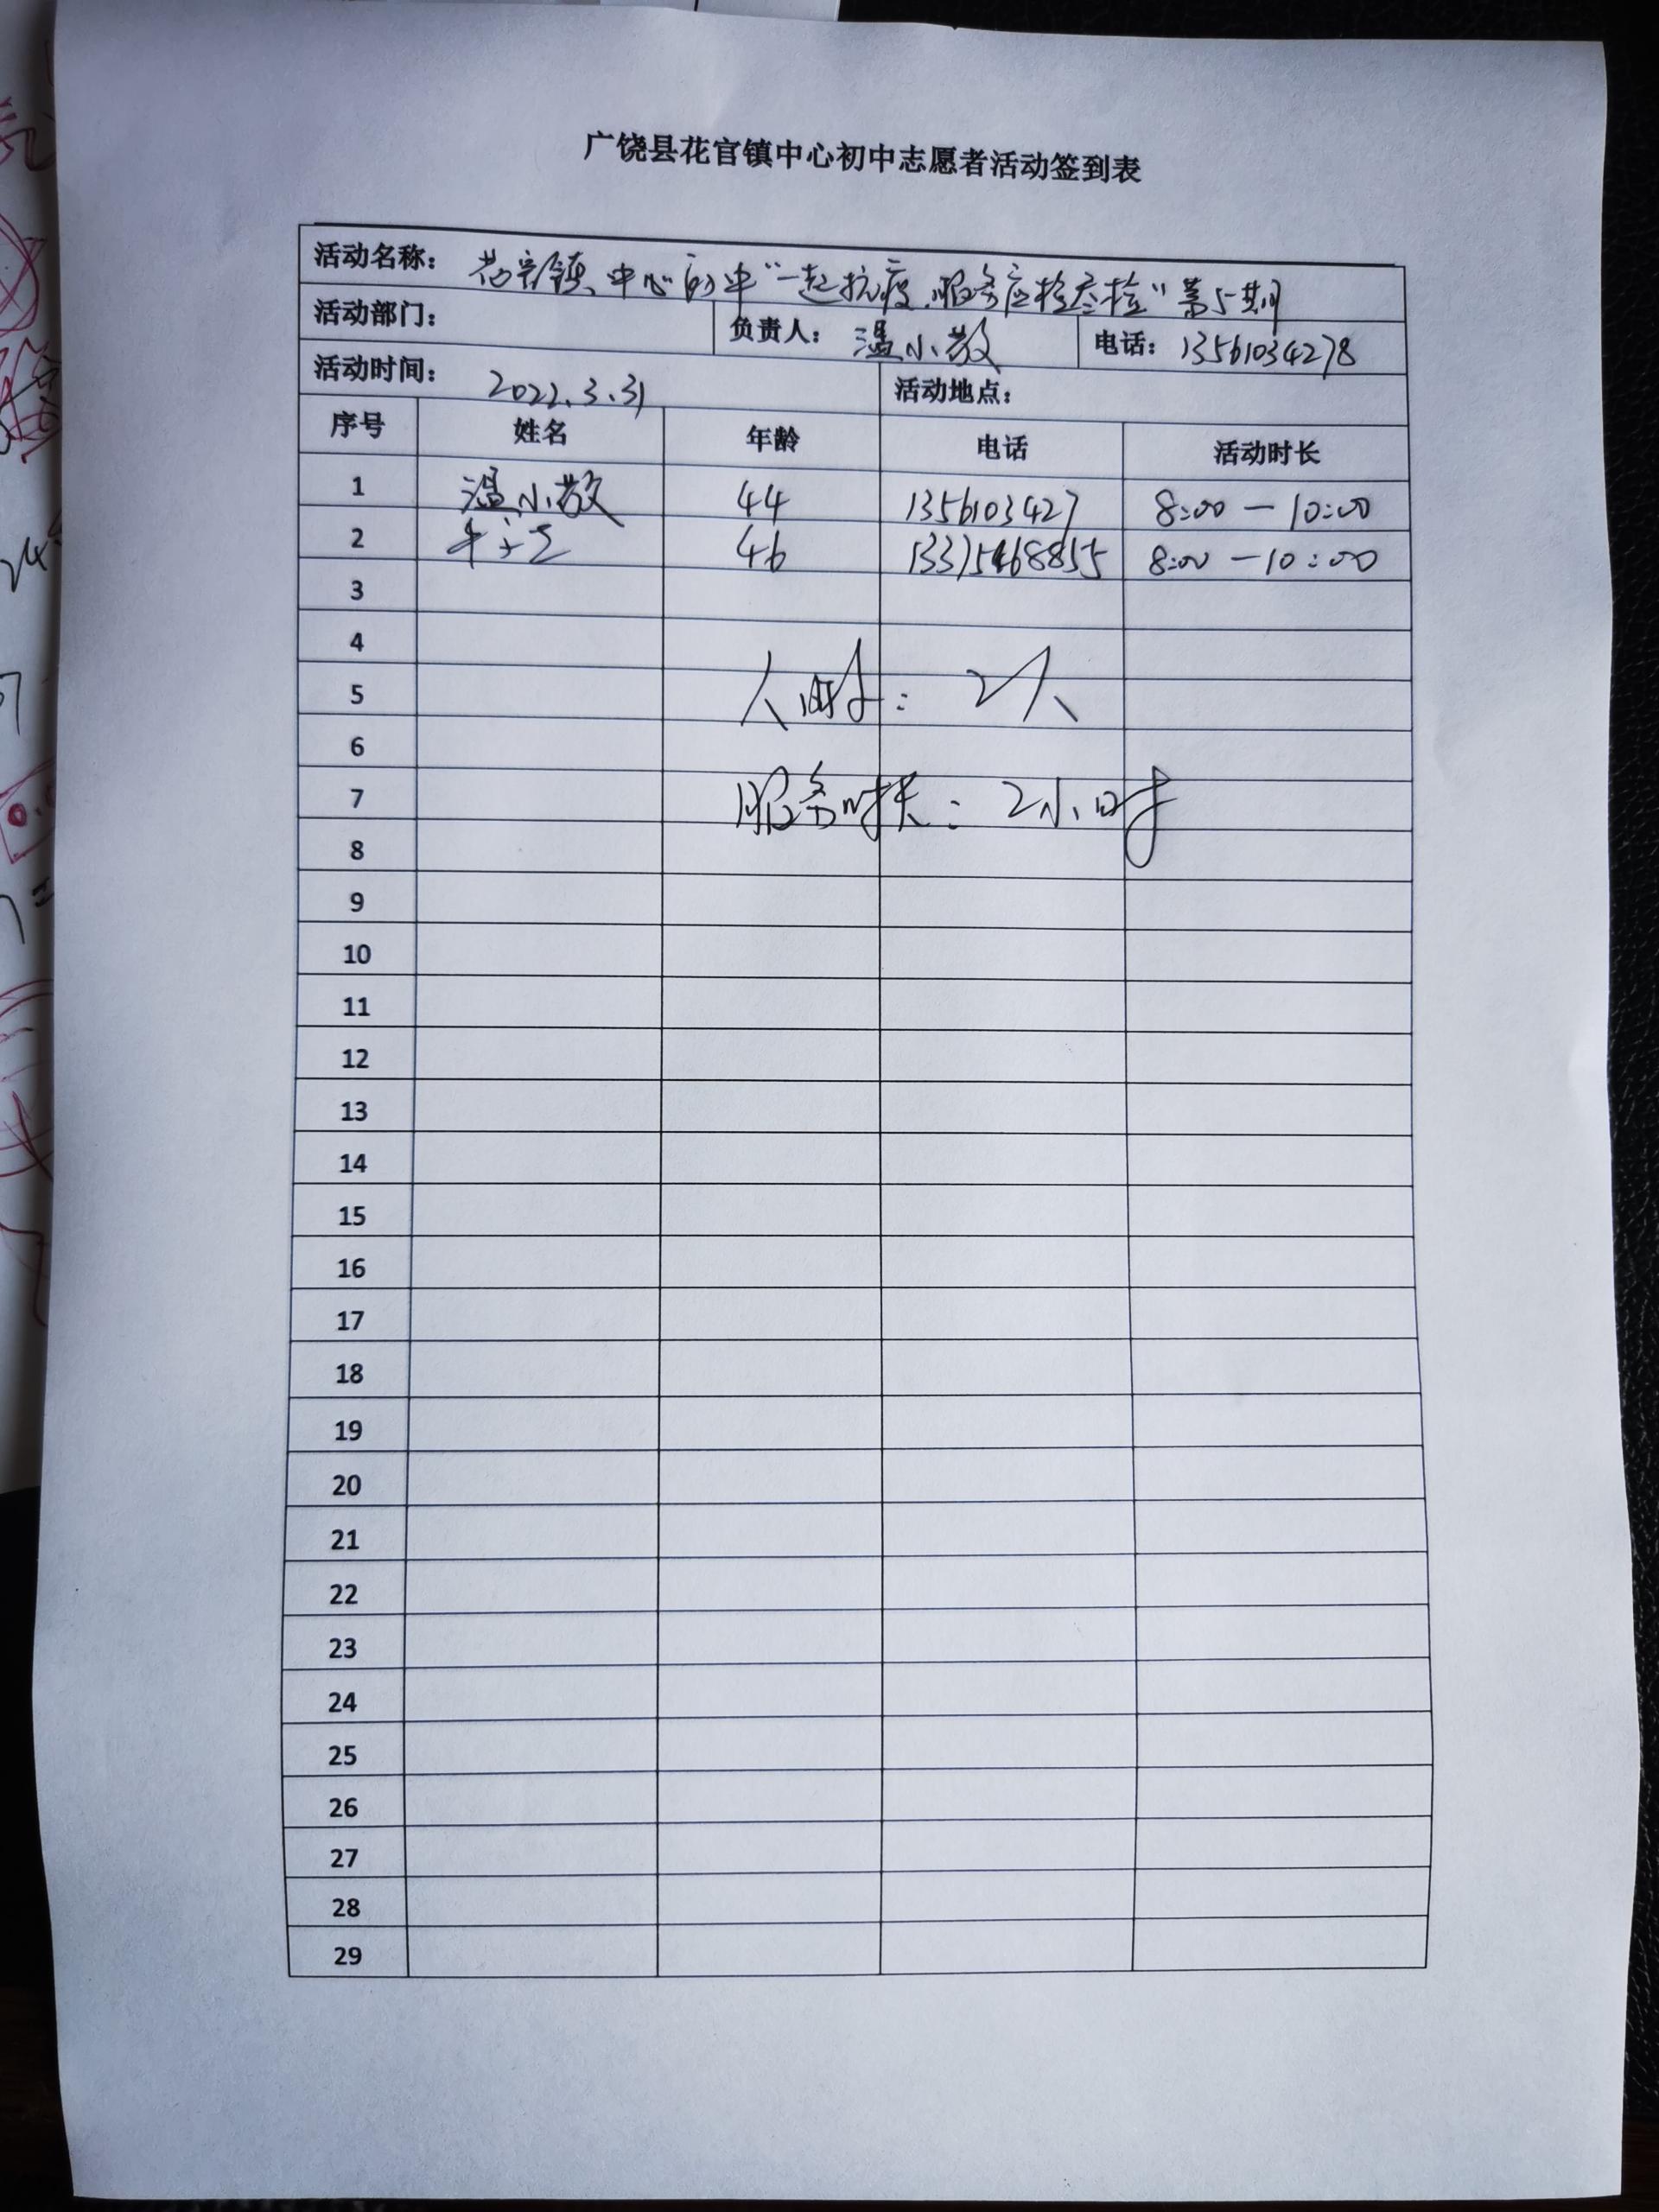 广饶县花官镇中心初中志愿者活动签到表
活动名称： 花官镇中心初中“一起抗疫，服务应检尽检”第5期
活动部门： 负责人： 温小散 电话：13561034278
活动时间： 2022.3.31 活动地点：
序号 姓名 年龄 电话 活动时长
1 温小散 44 1356103427 8:00—10:00
2 46 13375468855 8:00—10:00
3
4
5 人时： 2人
6
7 服务时长： 2小时
8
9
10
11
12
13
14
15
16
17
18
19
20
21
22
23
24
25
26
27
28
29